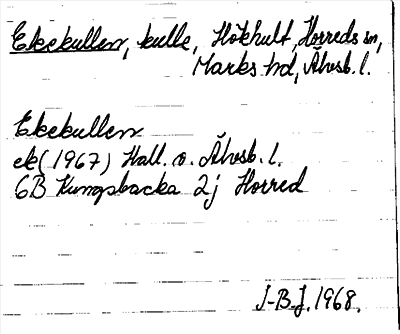 Ekekullen, kulle, Hökhult, Horreds sn,
Marks hd, Älvsb. l.
Ekekullen
ek (1967) Hall. o. Älvsb. l.
6B Kungsbacka 2j Horred
J-B.J. 1968.